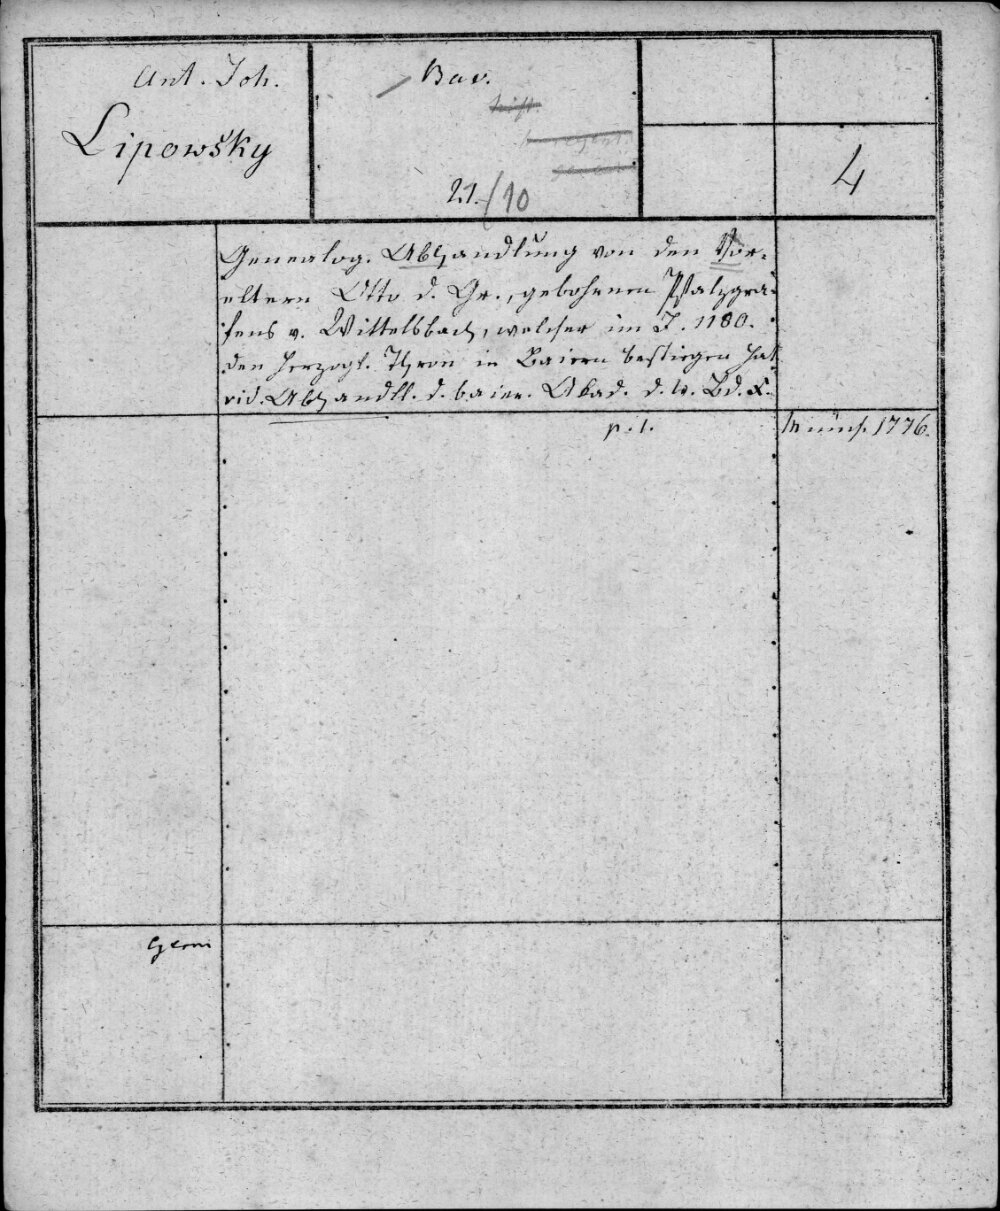 Ant. Joh.
Lipowsky
Bav.
hist.
regent.
21./10
4
Genealog. Abhandlung von den Vor-
eltern Otto d. Gr., gebohrnen Pfalzgra-
fens v. Wittelsbach, welcher im J. 1180.
den herzogl. Thron in Baiern bestiegen hat
vid. Abhandll. d. baier. Akad. d. W. Bd. X.
p. 1.
Münch. 1776.